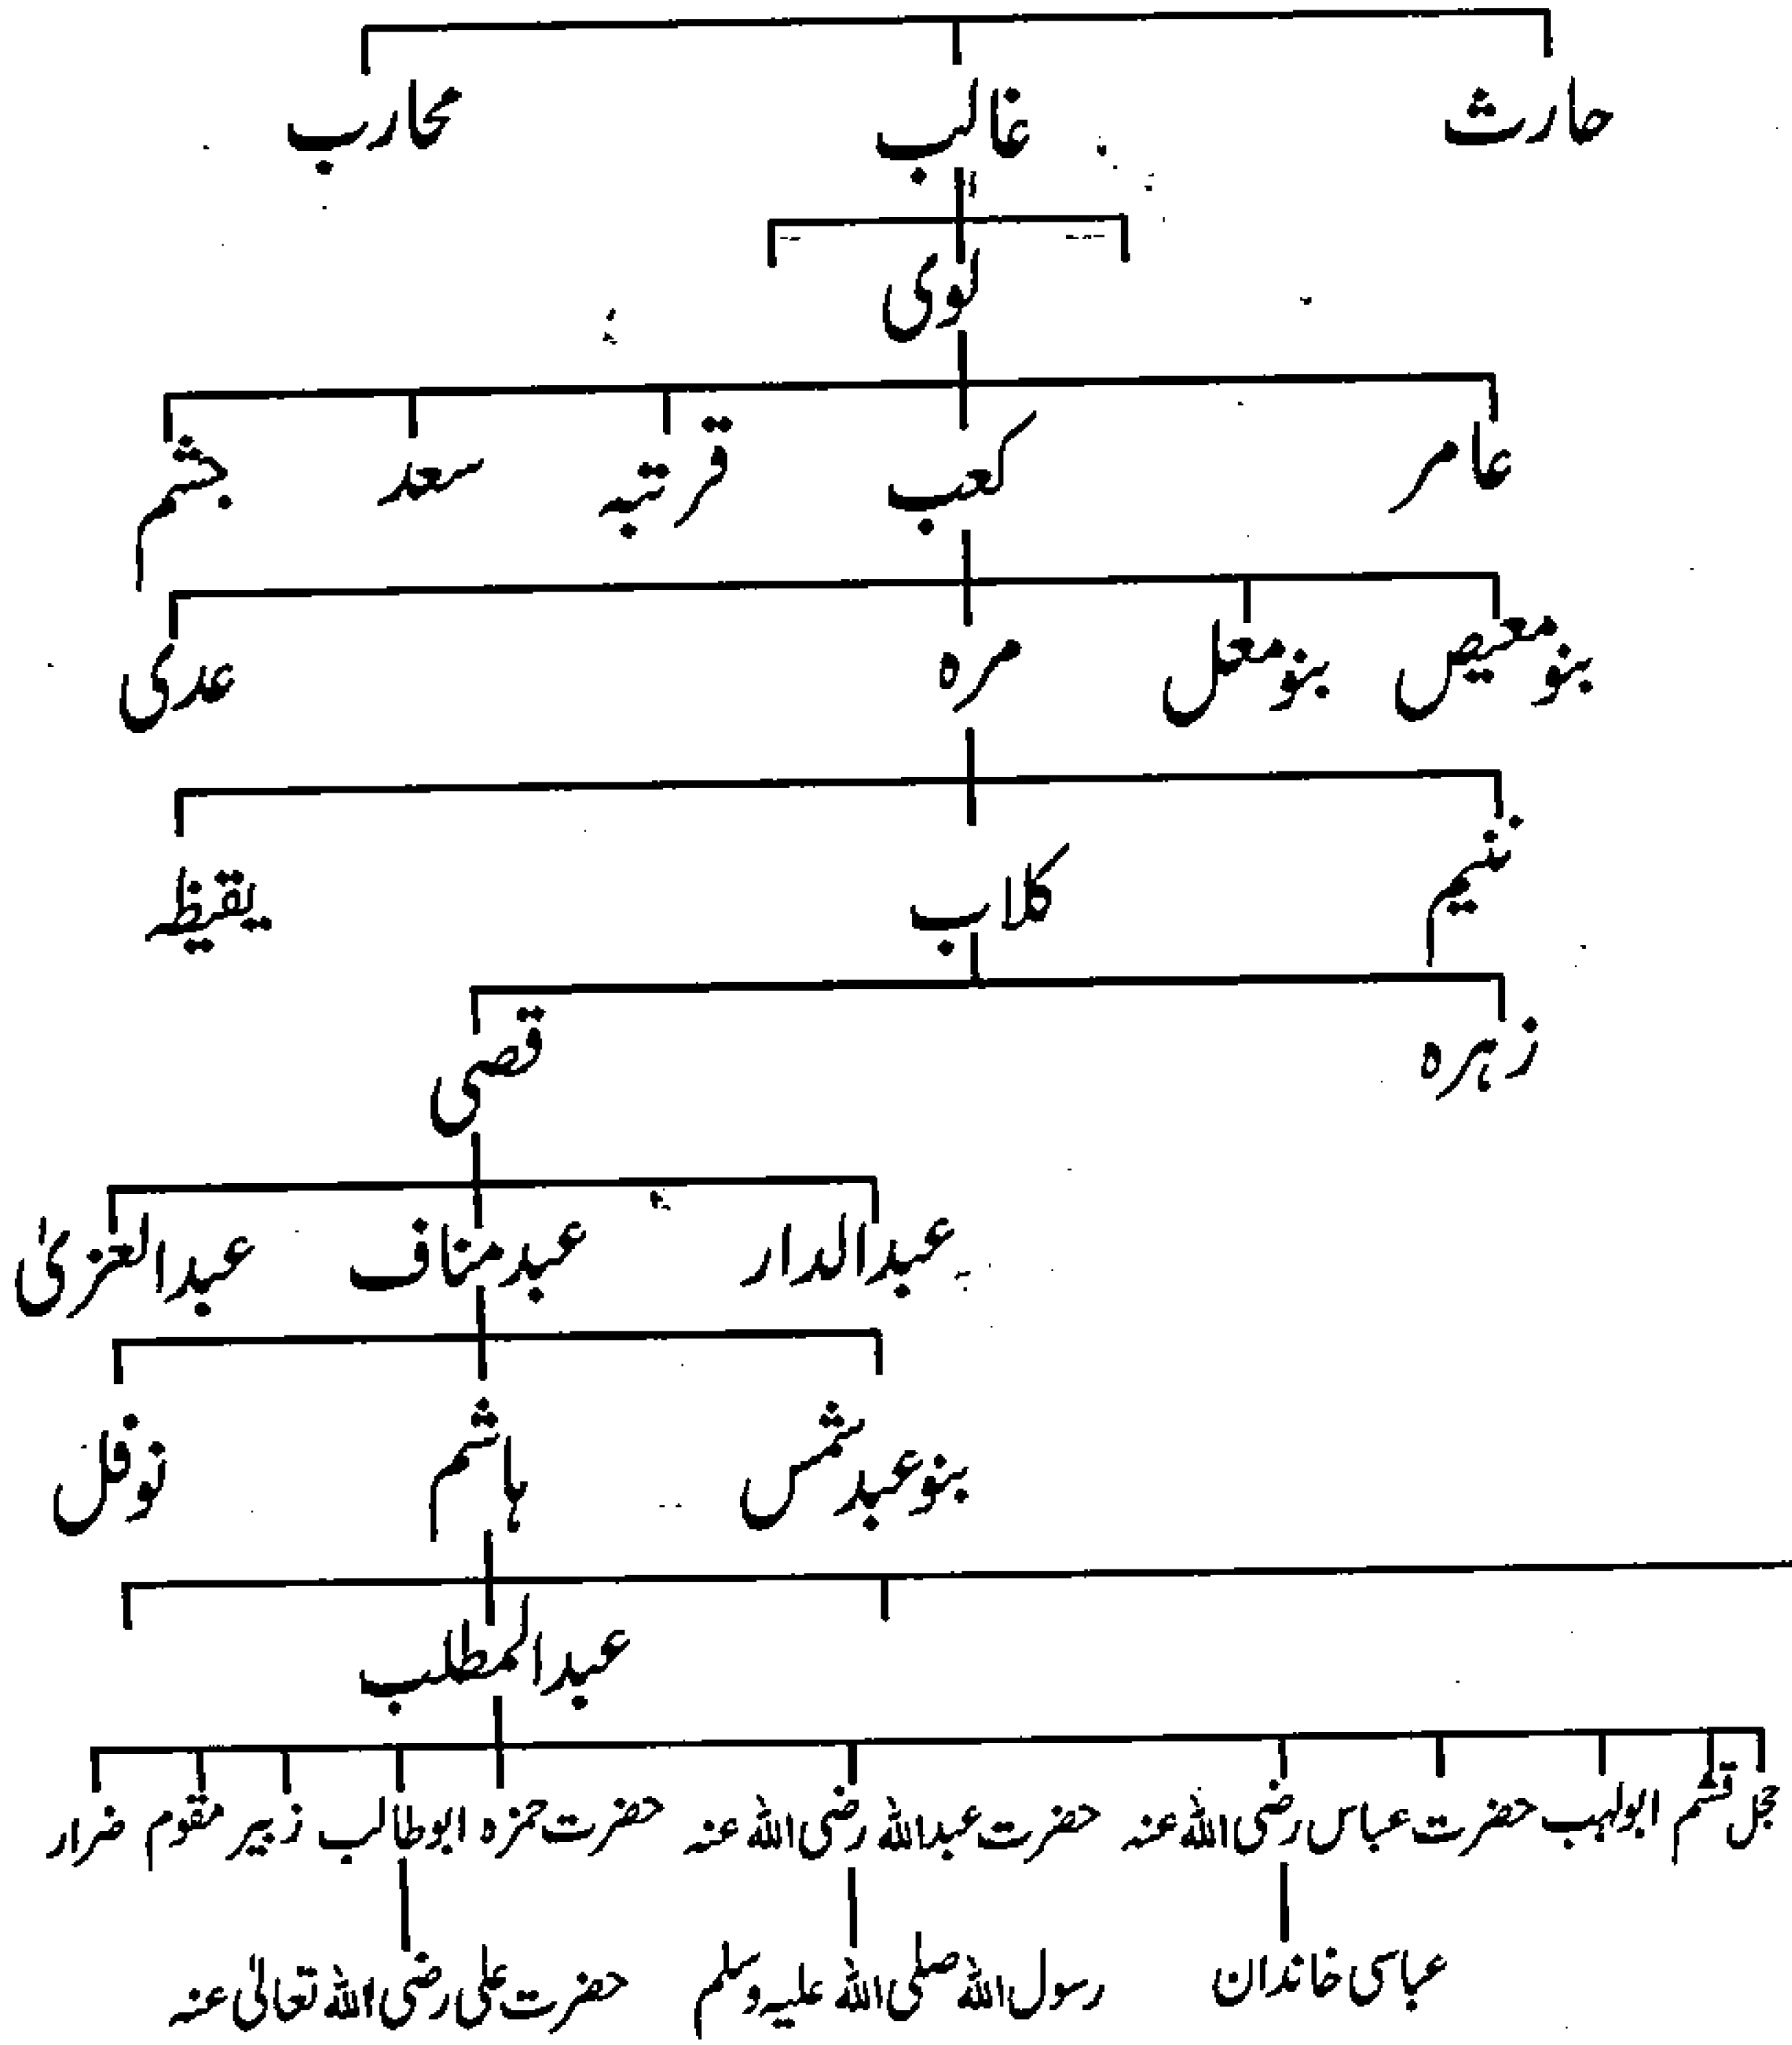 حارث غالب محارب
لوی
عامر کعب قرتبہ سعد جشم
بنو معیص بنو معل مرہ عدی
کلاب یقیظہ
زہرہ قصی
عبدالدار عبد مناف عبدالعزیٰ
بنو عبد شمس ہاشم نوفل
عبدالمطلب
حجل قشم ابولہب حضرت عباس رضی اللہ عنہ حضرت عبداللہ رضی اللہ عنہ حضرت حمزہ ابوطالب زبیر مقوم ضرار
عباسی خاندان رسول اللہ صلی اللہ علیہ وسلم حضرت علی رضی اللہ تعالیٰ عنہ